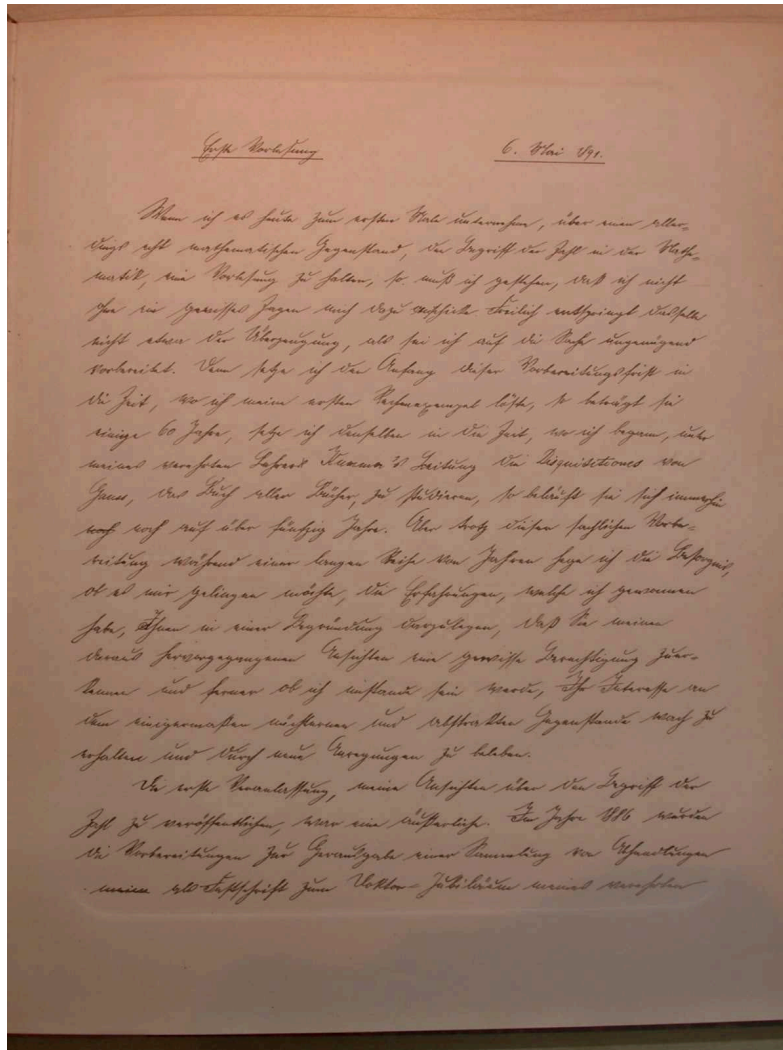 Erste Vorlesung 6. Mai 1891.
Wenn ich es heute zum ersten Male unternehme, über einen aller-
dings echt mathematischen Gegenstand, den Begriff der Zahl in der Mathe-
matik, eine Vorlesung zu halten, so muß ich gestehen, daß ich nicht
ohne ein gewisses Zagen mich dazu anschicke. Freilich entspringt dasselbe
nicht etwa der Überzeugung, als sei ich auf die Sache ungenügend
vorbereitet. Denn setze ich den Anfang dieser Vorbereitungsfrist in
die Zeit, wo ich meine ersten Rechenexempel löste, so beträgt sie
einige 60 Jahre, setze ich denselben in die Zeit, wo ich begann, unter
meines verehrten Lehrers Kummer's Leitung die Disquisitiones von
Gauss, das Buch aller Bücher, zu studieren, so beläuft sie sich immerhin
noch noch auf über fünfzig Jahre. Aber trotz dieser sachlichen Vorbe-
reitung während einer langen Reihe von Jahren hege ich die Besorgnis,
ob es mir gelingen möchte, die Erfahrungen, welche ich gewonnen
habe, Ihnen in einer Begründung darzulegen, daß Sie meinen
daraus hervorgegangenen Ansichten eine gewisse Berechtigung zuer-
kennen und ferner ob ich imstande sein werde, Ihr Interesse an
dem einigermaßen nüchternen und abstrakten Gegenstande wach zu
erhalten und durch neue Anregungen zu beleben.
Die erste Veranlassung, meine Ansichten über den Begriff der
Zahl zu veröffentlichen, war eine äußerliche. Im Jahre 1886 wurden
die Vorbereitungen zur Herausgabe einer Sammlung von Abhandlungen
als Festschrift zum Doktor-Jubiläum meines verehrten